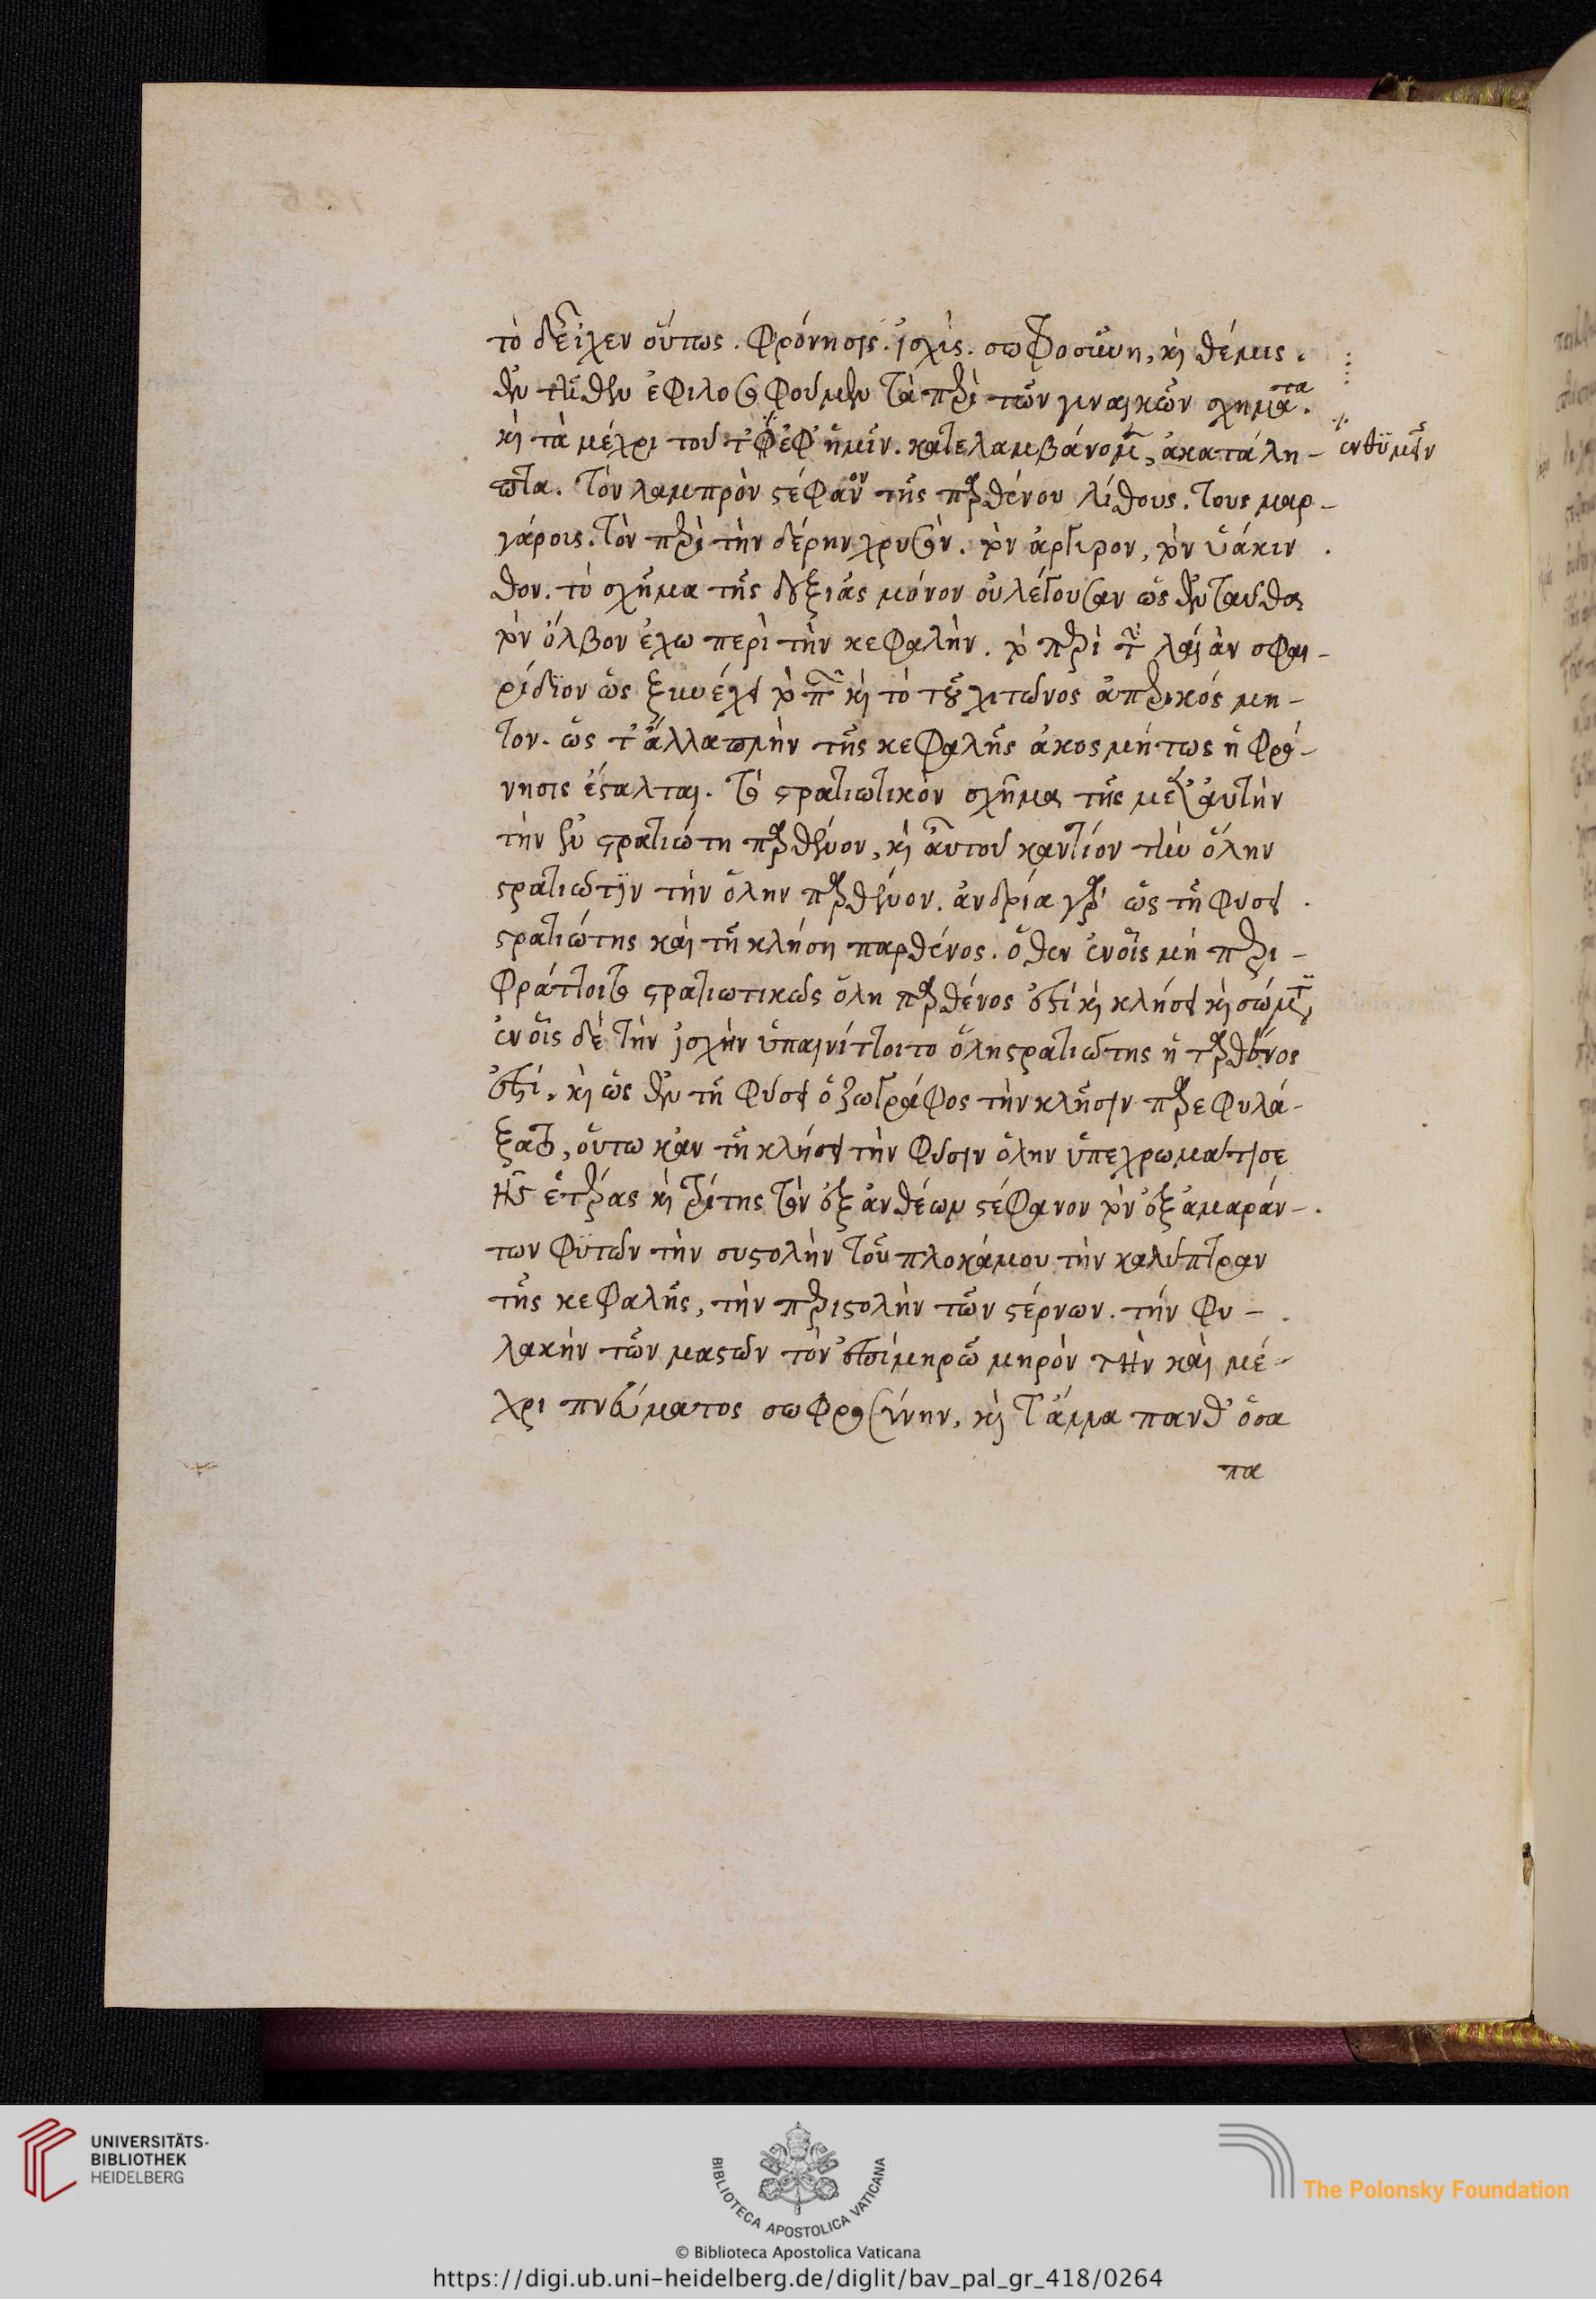 τὸ δ' εἶχεν οὕτως. Φρόνησις. ἰσχὺς. σωφροσύνη, κὶ θέμις.
ἐν τεῦθεν ἐφιλοσοφούμεν τὰ περὶ τῶν γυναικῶν σχήματα.
κὶ τὰ μέχρι τοῦ τ' ἐφ' ἡμῖν. κατελαμβάνομεν, ἀκατάλη-
ενθυμεῖν
πτα. τὸν λαμπρὸν στέφανον τῆς παρθένου λίθους. τους μαρ-
γάροις. τὸν περὶ τὴν δέρην χρυσόν. τὸν ἄργυρον, τὸν ὑάκιν
θον. τὸ σχῆμα τῆς δεξιᾶς μόνον οὐ λέγουσαν ὡς ἐνταῦθα
τὸν ὄλβον ἔχω περὶ τὴν κεφαλὴν. τὸ περὶ τὴν λαιὰν σφαι-
ρίδιον ὡς ξυνέχει τὸ πᾶν κὶ τὸ τοῦ χιτῶνος ἀπερικόσμη-
τον. ὡς τ' ἄλλα πλὴν τῆς κεφαλῆς ἀκοσμήτως ἡ φρό-
νησις ἔσταλται. τὸ στρατιωτικὸν σχῆμα τῆς μετ' αὐτὴν
τὴν ἐν στρατιώτη παρθένον, κὶ ἀυτοῦ καντίον τὴν ὅλην
στρατιώτην τὴν ὅλην παρθένον. ἀνδρία γὰρ ὡς τῆ φύσει
στρατιώτης καὶ τῆ κλήση παρθένος. ὅθεν ἐν οἷς μὴ περι-
φράττοιτο στρατιωτικῶς ὅλη παρθένος ἐστὶ κὶ κλήσει κὶ σώματι
ἐν οἷς δὲ τὴν ἰσχὴν ὑπαινίττοιτο ὅλη στρατιώτης ἡ παρθένος
ἐστί. κὶ ὡς ἐν τῆ φύσει ὁ ζωγράφος τὴν κλῆσιν παρεφυλά-
ξατο, οὕτω κἀν τῆ κλήσει τὴν φύσιν ὅλην ὑπεχρωμάτισε
τῆς ἑτέρας κὶ τρίτης τὸν ἐξ ἀνθέων στέφανον τὸν ἐξ ἀμαράν-
των φυτῶν τὴν συστολὴν τοῦ πλοκάμου τὴν καλύπτραν
τῆς κεφαλῆς, τὴν περιστολὴν τῶν στέρνων. τὴν φυ-
λακὴν τῶν μαστῶν τὸν ἐπὶ μηρῶ μηρὸν τὴν καὶ μέ-
χρι πνεύματος σωφροσύνην, κὶ τ' ἄμμα πανθ' ὅσα
πα
UNIVERSITÄTS-
BIBLIOTHEK
HEIDELBERG
BIBLIOTECA APOSTOLICA VATICANA
The Polonsky Foundation
© Biblioteca Apostolica Vaticana
https://digi.ub.uni-heidelberg.de/diglit/bav_pal_gr_418/0264